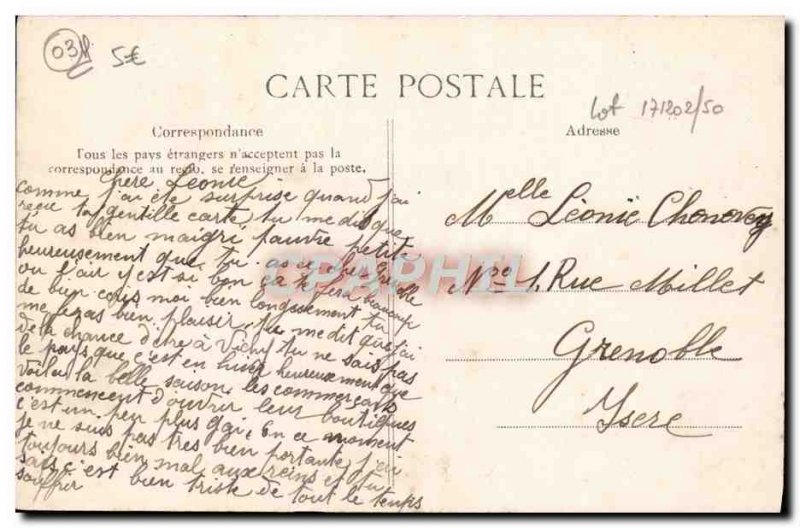 03
5€
CARTE POSTALE
Lot 171202/50
Correspondance
Adresse
Tous les pays étrangers n'acceptent pas la
correspondance au recto, se renseigner à la poste.
Chère Léonie
comme j'ai été surprise quand j'ai
reçu ta gentille carte tu me dit que
tu as bien maigri pauvre petit
heureusement que tu as ce cher
ou l'air y est si bon ça te fera beaucoup
de bien moi bien longuement tu
me feras bien plaisir, tu me dit que j'ai
de la chance d'être à Vichy tu ne sais pas
le pays que c'est en hiver heureusement que
voilà la belle saison, les commerçants
commencent d'ouvrir leur boutiques
c'est un peu plus gai, En ce moment
je ne suis pas très bien portante, j'ai
toujours bien mal aux reins et tu
sais c'est bien triste de tout le temps
souffrir
CPAPHIL
Melle Léonie
No 1, Rue Millet
Grenoble
Isere